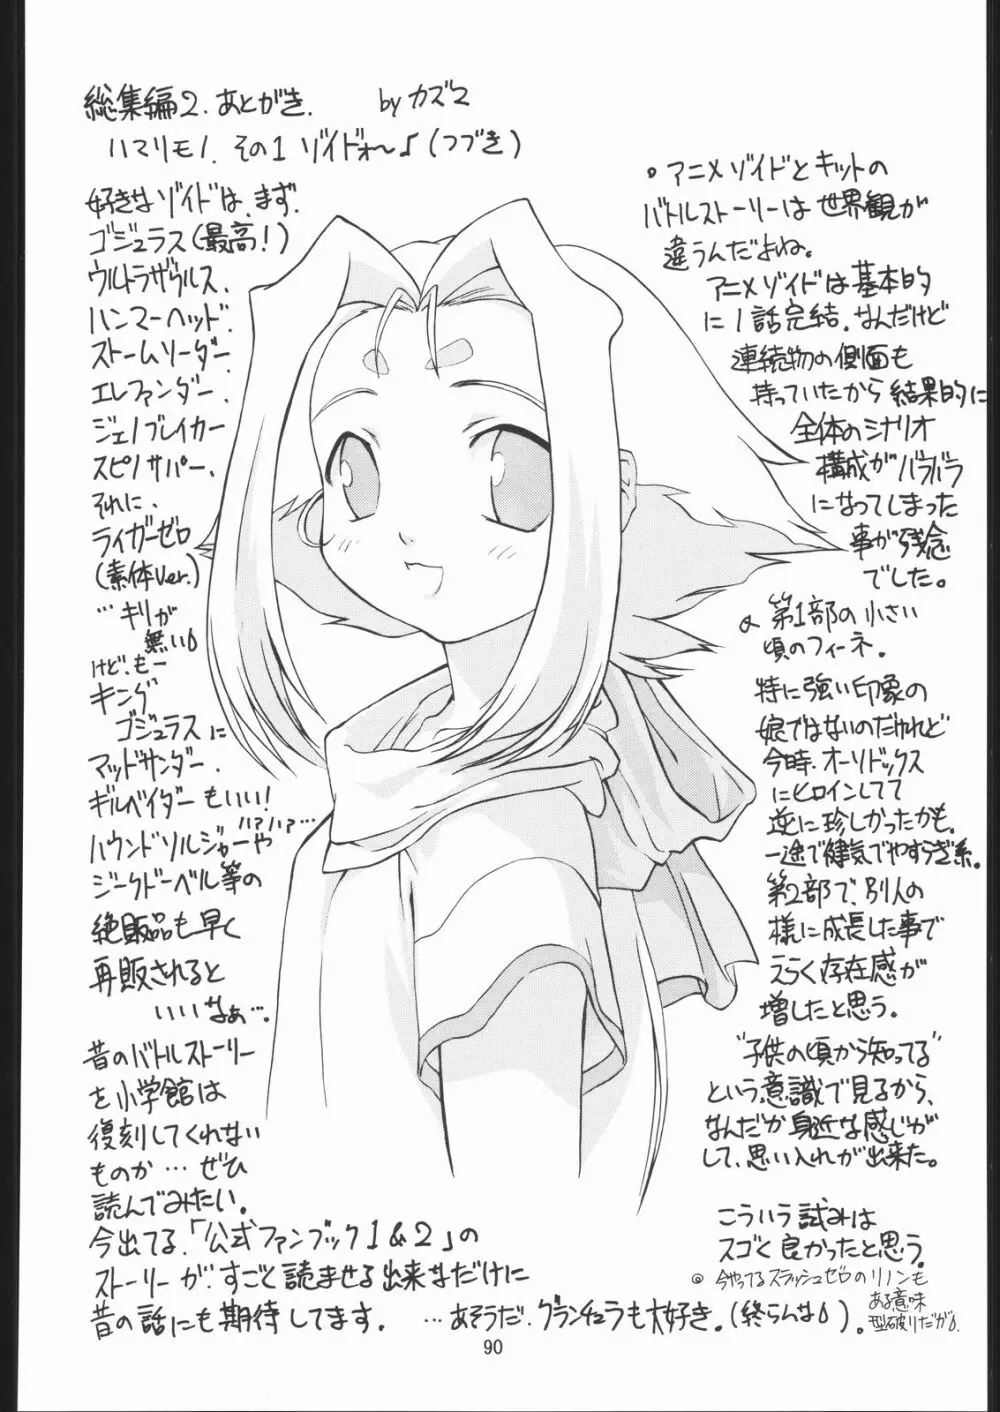 総集編2.あとがき. byカズマ
ハマリモノ.その1 ゾイドォ〜♪(つづき)
好きなゾイドは、まず.
ゴジュラス(最高!)
ウルトラザウルス.
ハンマーヘッド.
ストームソーダー.
エレファンダー.
ジェノブレイカー
スピノサパー.
それに.
ライガーゼロ
(素体Ver.)
…キリが
無い
けど.もー
キング
ゴジュラスに
マッドサンダー.
ギルベイダーもいい!
ハァハァ…
ハウンドソルジャーや
ジークドーベル等の
絶販品も早く
再販されると
いいなぁ….
昔のバトルストーリー
を小学館は
復刻してくれない
ものか…ぜひ
読んでみたい.
今出てる.「公式ファンブック1&2」の
ストーリーが.すごく読ませる出来なだけに
昔の話にも期待してます. …あそうだ.グランチュラも大好き.(終らんな).
。アニメゾイドとキットの
バトルストーリーは世界観が
違うんだよね。
アニメゾイドは基本的
に1話完結.なんだけど
連続物の側面も
持っていたから結果的に
全体のシナリオ
構成がバラバラ
になってしまった
事が残念
でした。
第1部の小さい
頃のフィーネ.
特に強い印象の
娘ではないのだけれど
今時.オーソドックス
にヒロインしてて
逆に珍しかったかも.
一途で健気でやすらぎ系.
第2部で、別人の
様に成長した事で
えらく存在感が
増したと思う.
"子供の頃から知ってる"
という意識で見るから、
なんだか身近な感じが
して、思い入れが出来た。
こういう試みは
スゴく良かったと思う.
◎今やってるスラッシュゼロのリノンも
ある意味
型破りだが.
90